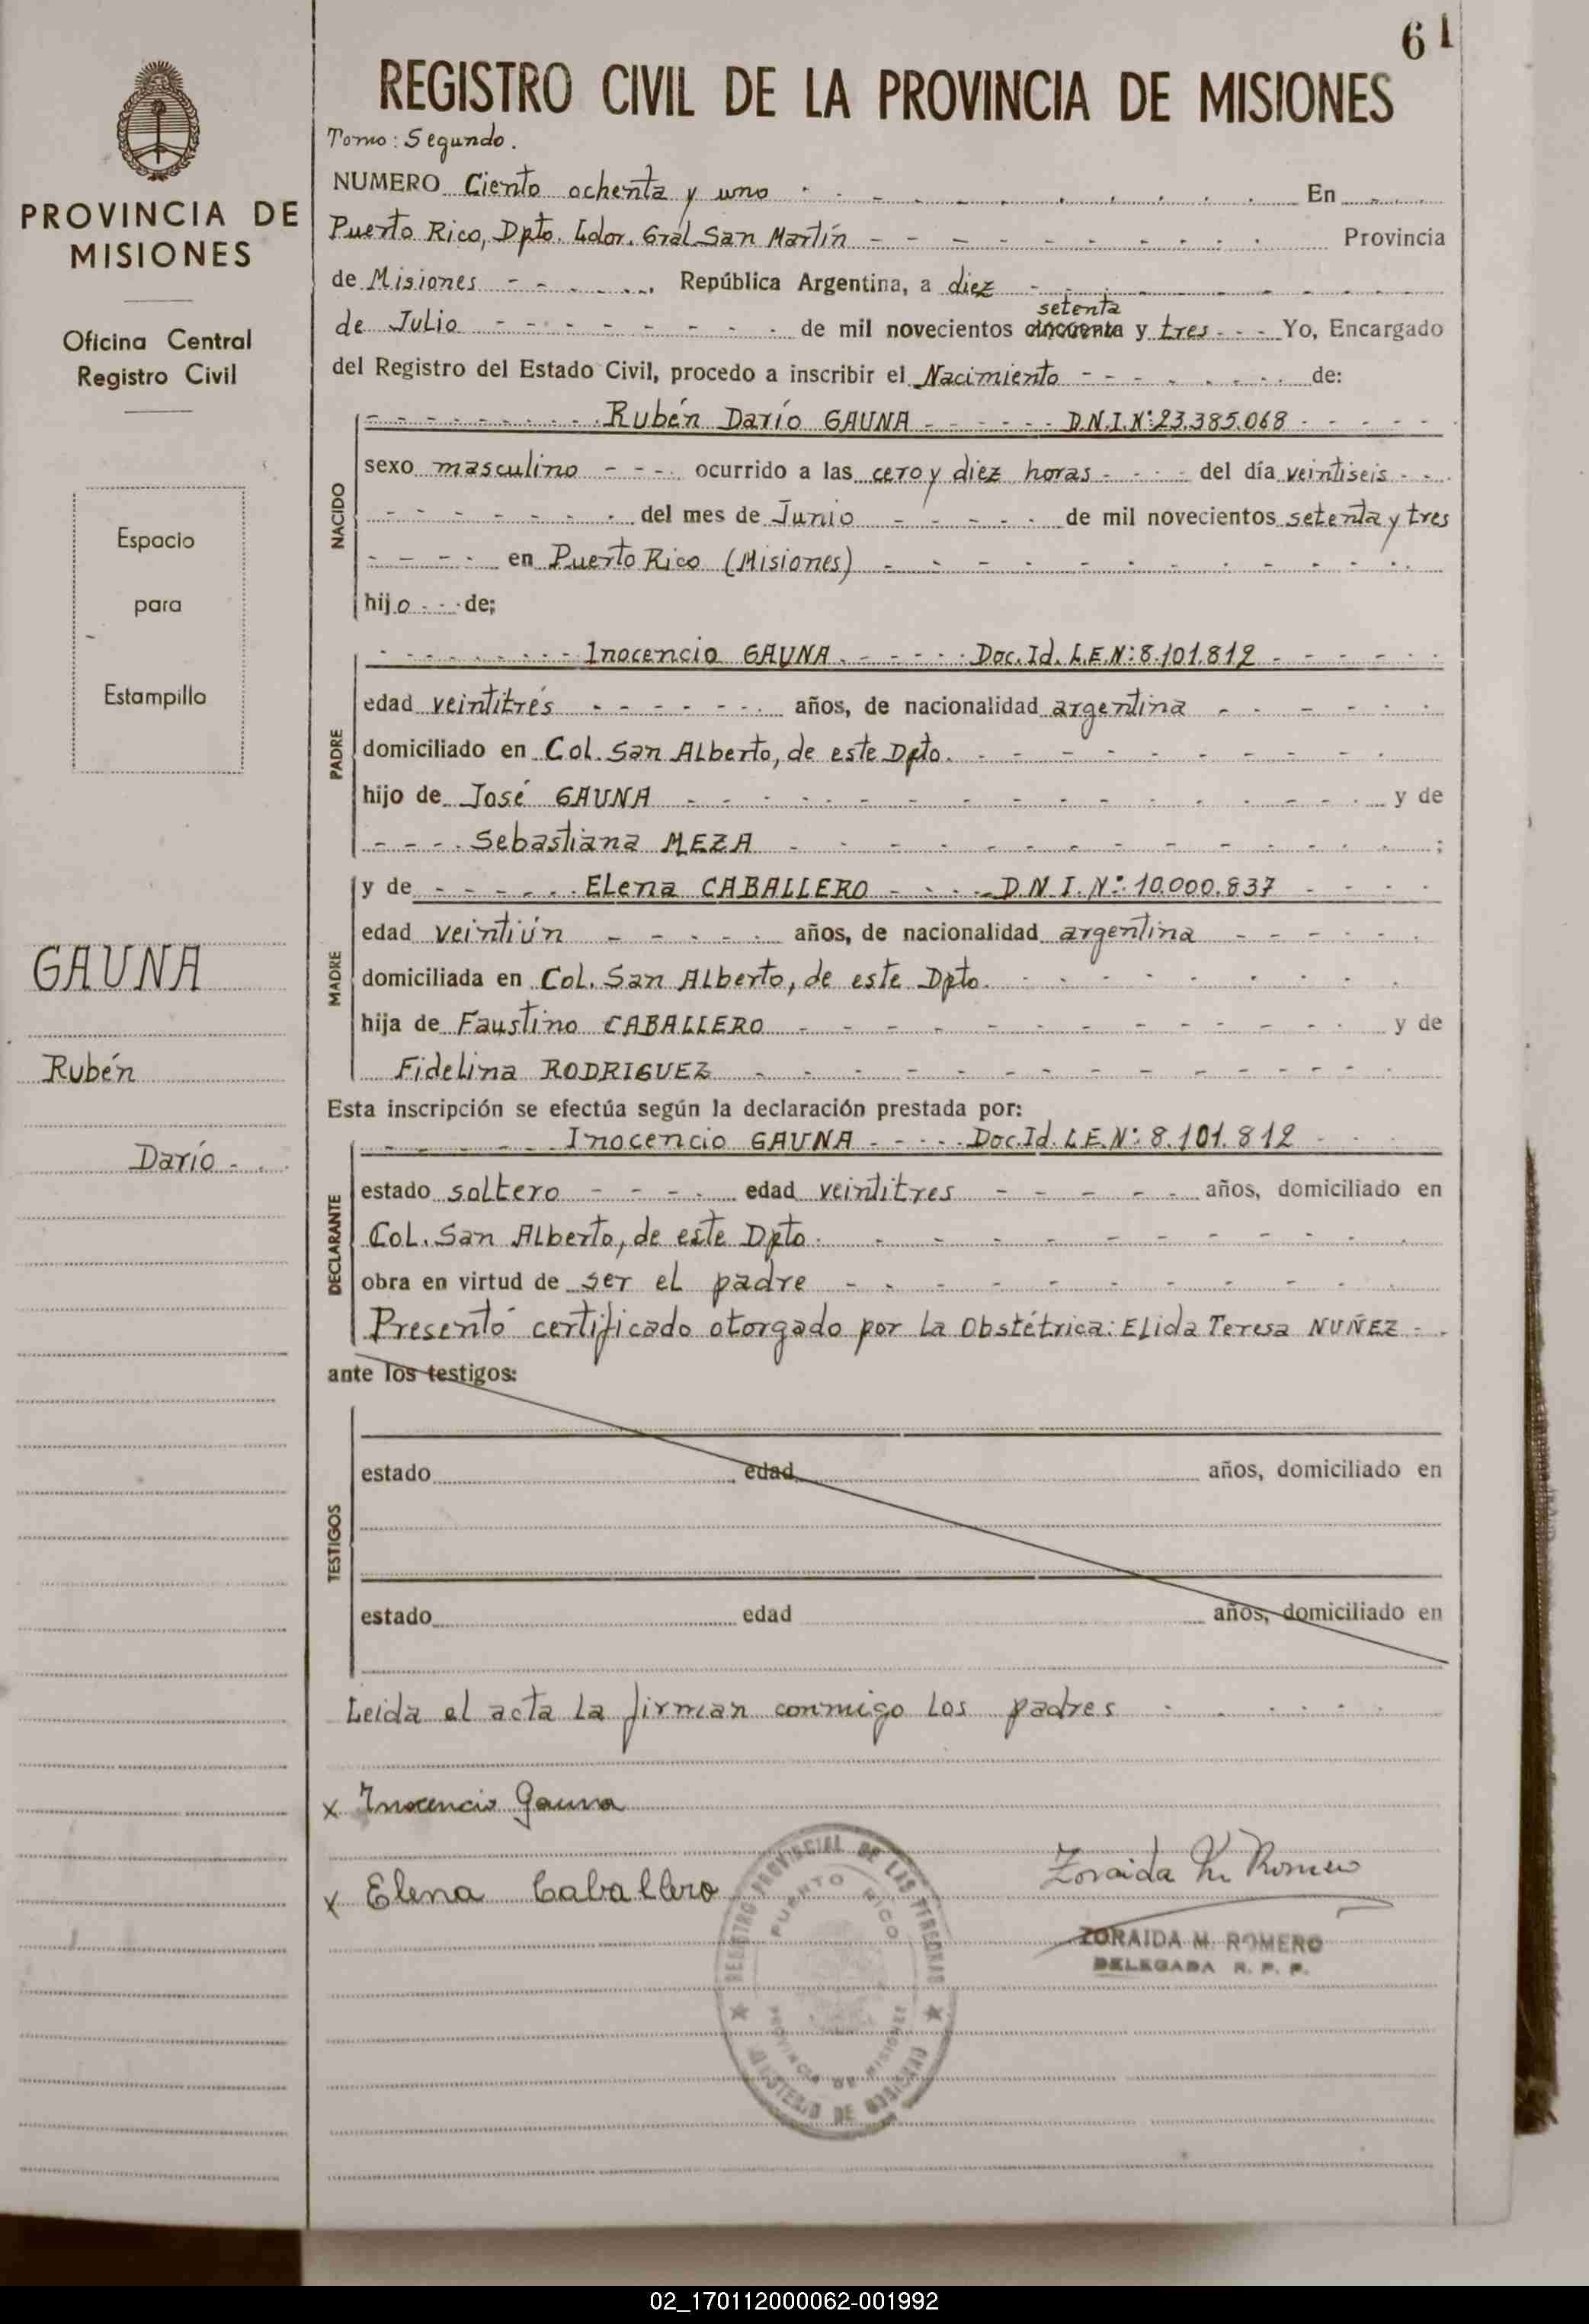 61
PROVINCIA DE
MISIONES
Oficina Central
Registro Civil
Espacio
para
Estampilla
GAUNA
Rubén
Darío
REGISTRO CIVIL DE LA PROVINCIA DE MISIONES
Tomo: Segundo.
NUMERO Ciento ochenta y uno En
Puerto Rico, Dpto. Ldor. Gral San Martín Provincia
de Misiones República Argentina, a diez
setenta
de Julio de mil novecientos cincuenta y tres Yo, Encargado
del Registro del Estado Civil, procedo a inscribir el Nacimiento de:
Rubén Darío GAUNA D.N.I.Nº:23.385.068
NACIDO
sexo masculino ocurrido a las cero y diez horas del día veintiseis
del mes de Junio de mil novecientos setenta y tres
en Puerto Rico (Misiones)
hijo de;
PADRE
Inocencio GAUNA Doc. Id. L.E.Nº:8.101.812
edad veintitrés años, de nacionalidad argentina
domiciliado en Col. San Alberto, de este Dpto.
hijo de José GAUNA y de
Sebastiana MEZA ;
MADRE
y de Elena CABALLERO D.N.I. Nº: 10.000.837
edad veintiún años, de nacionalidad argentina
domiciliada en Col. San Alberto, de este Dpto.
hija de Faustino CABALLERO y de
Fidelina RODRIGUEZ
Esta inscripción se efectúa según la declaración prestada por:
DECLARANTE
Inocencio GAUNA Doc.Id. L.E.Nº: 8.101.812
estado soltero edad veintitres años, domiciliado en
Col. San Alberto, de este Dpto.
obra en virtud de ser el padre
Presentó certificado otorgado por la Obstétrica: Elida Teresa NUÑEZ
ante los testigos:
TESTIGOS
estado edad años, domiciliado en
estado edad años, domiciliado en
Leida el acta la firman conmigo los padres
x Inocencio Gauna
x Elena Caballero
Zoraida M. Romero
ZORAIDA M. ROMERO
DELEGADA R. P. P.
REGISTRO PROVINCIAL DE LAS PERSONAS
PUERTO RICO
PROVINCIA DE MISIONES
MINISTERIO DE GOBIERNO
02_170112000062-001992